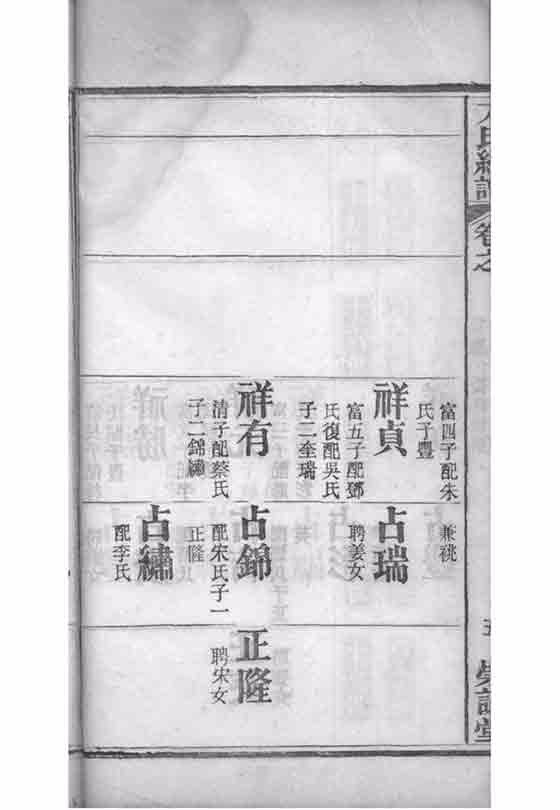 卷之
富四子配朱
氏子豐
祥貞
富五子配鄧
氏復配吳氏
子二奎瑞
祥有
清子配蔡氏
子二錦繡
兼祧
占瑞
聘姜女
占錦
配宋氏子一
正隆
占繡
配李氏
正隆
聘宋女